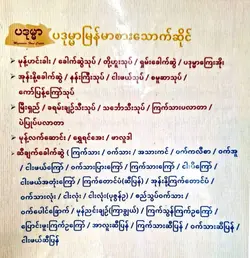 ပဒုမ္မာ
ပဒုမ္မာမြန်မာစားသောက်ဆိုင်
• မုန့်ဟင်းခါး / ခေါက်ဆွဲသုပ် / တို့ဟူးသုပ် / ရှမ်းခေါက်ဆွဲ / ပဒုမ္မာကြေးအိုး
• အုန်းနို့ခေါက်ဆွဲ / နန်းကြီးသုပ် / ငါးဖယ်သုပ် / မုမ္မဆာသုပ် /
ကော်ပြန့်ကြော်သုပ်
• မြီးရှည် / ခရမ်းချဉ်သီးသုပ် / သင်္ဘောသီးသုပ် / ကြက်သားပလာတာ /
ပဲပြုပ်ပလာတာ
• မုန့်လက်ဆောင်း / ရွှေရင်အေး / ဖာလူဒါ
• ဆီချက်ခေါက်ဆွဲ ( ကြက်သား / ဝက်သား / အသားကင် / ဝက်ကလီစာ / ဝက်အူ
/ ငါးဖယ်ကြော် / ဝက်သားပြားကြော် / ကြက်သားကြော် / ငါးပိကြော်
ငါးဖယ်အတုံးကြော် / ကြက်တောင်ပံ(ဆီပြန်) / အုန်းနို့ကြက်တောင်ပံ /
ဝက်သားလုံး / ငါးလုံး / ငါးလုံး(ပုစွန်) / စည်သွပ်ဝက်သား /
ဝက်ပေါင်ခြောက် / မုန်ညင်းချဉ်(ကြာညွယ်) / ကြက်သွန်ကြက်ဥကြော် /
မြောင်းမြကြက်ဥကြော် / အာလူးဆီပြန် / ကြက်သားဆီပြန် / ဝက်သားဆီပြန် /
ငါးဖယ်ဆီပြန်